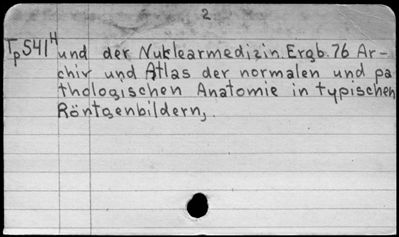 2
Tp541H und der Nuklearmedizin. Ergb. 76 Ar-
chiv und Atlas der normalen und pa
thologischen Anatomie in typischen
Röntgenbildern,.